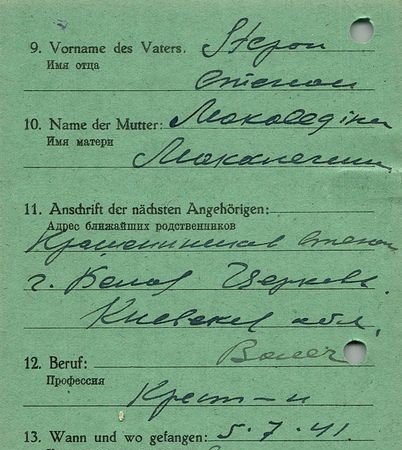 9. Vorname des Vaters: Stepon
Имя отца
Степон
10. Name der Mutter:
Имя матери
11. Anschrift der nächsten Angehörigen:
Адрес ближайших родственников
г. Белая Церковь
Киевская обл.
12. Beruf: Bauer
Профессия
Крест-н
13. Wann und wo gefangen: 5.7.41.